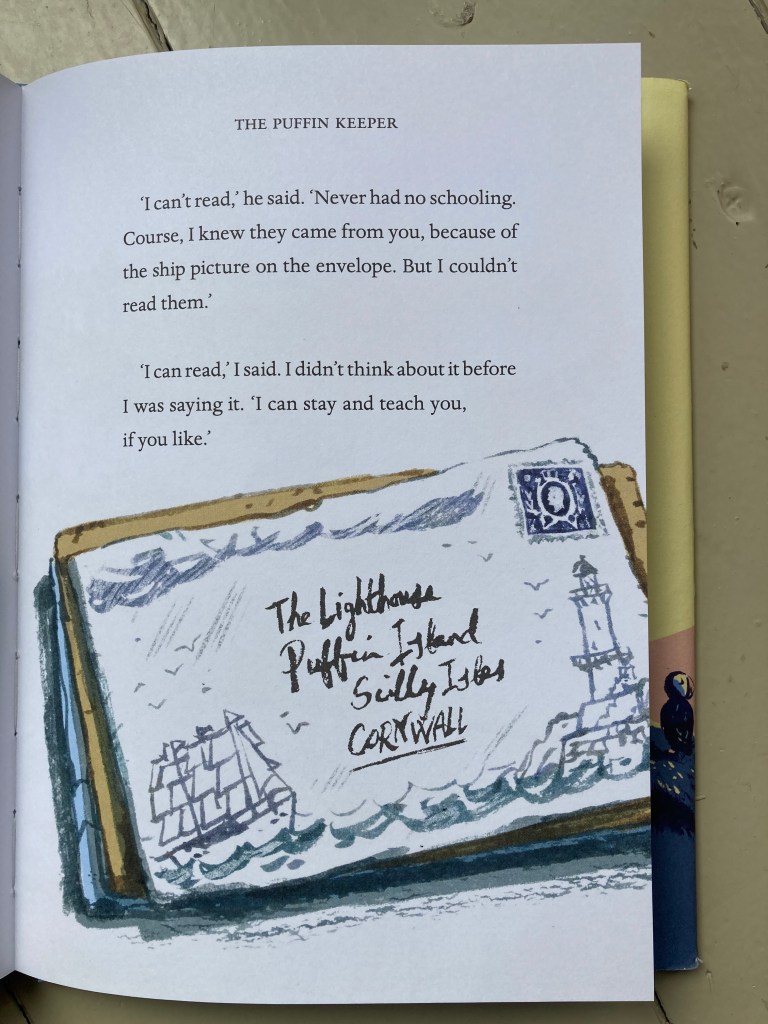 THE PUFFIN KEEPER
‘I can’t read,’ he said. ‘Never had no schooling.
Course, I knew they came from you, because of
the ship picture on the envelope. But I couldn’t
read them.’
‘I can read,’ I said. I didn’t think about it before
I was saying it. ‘I can stay and teach you,
if you like.’
The Lighthouse
Puffin Island
Scilly Isles
CORNWALL